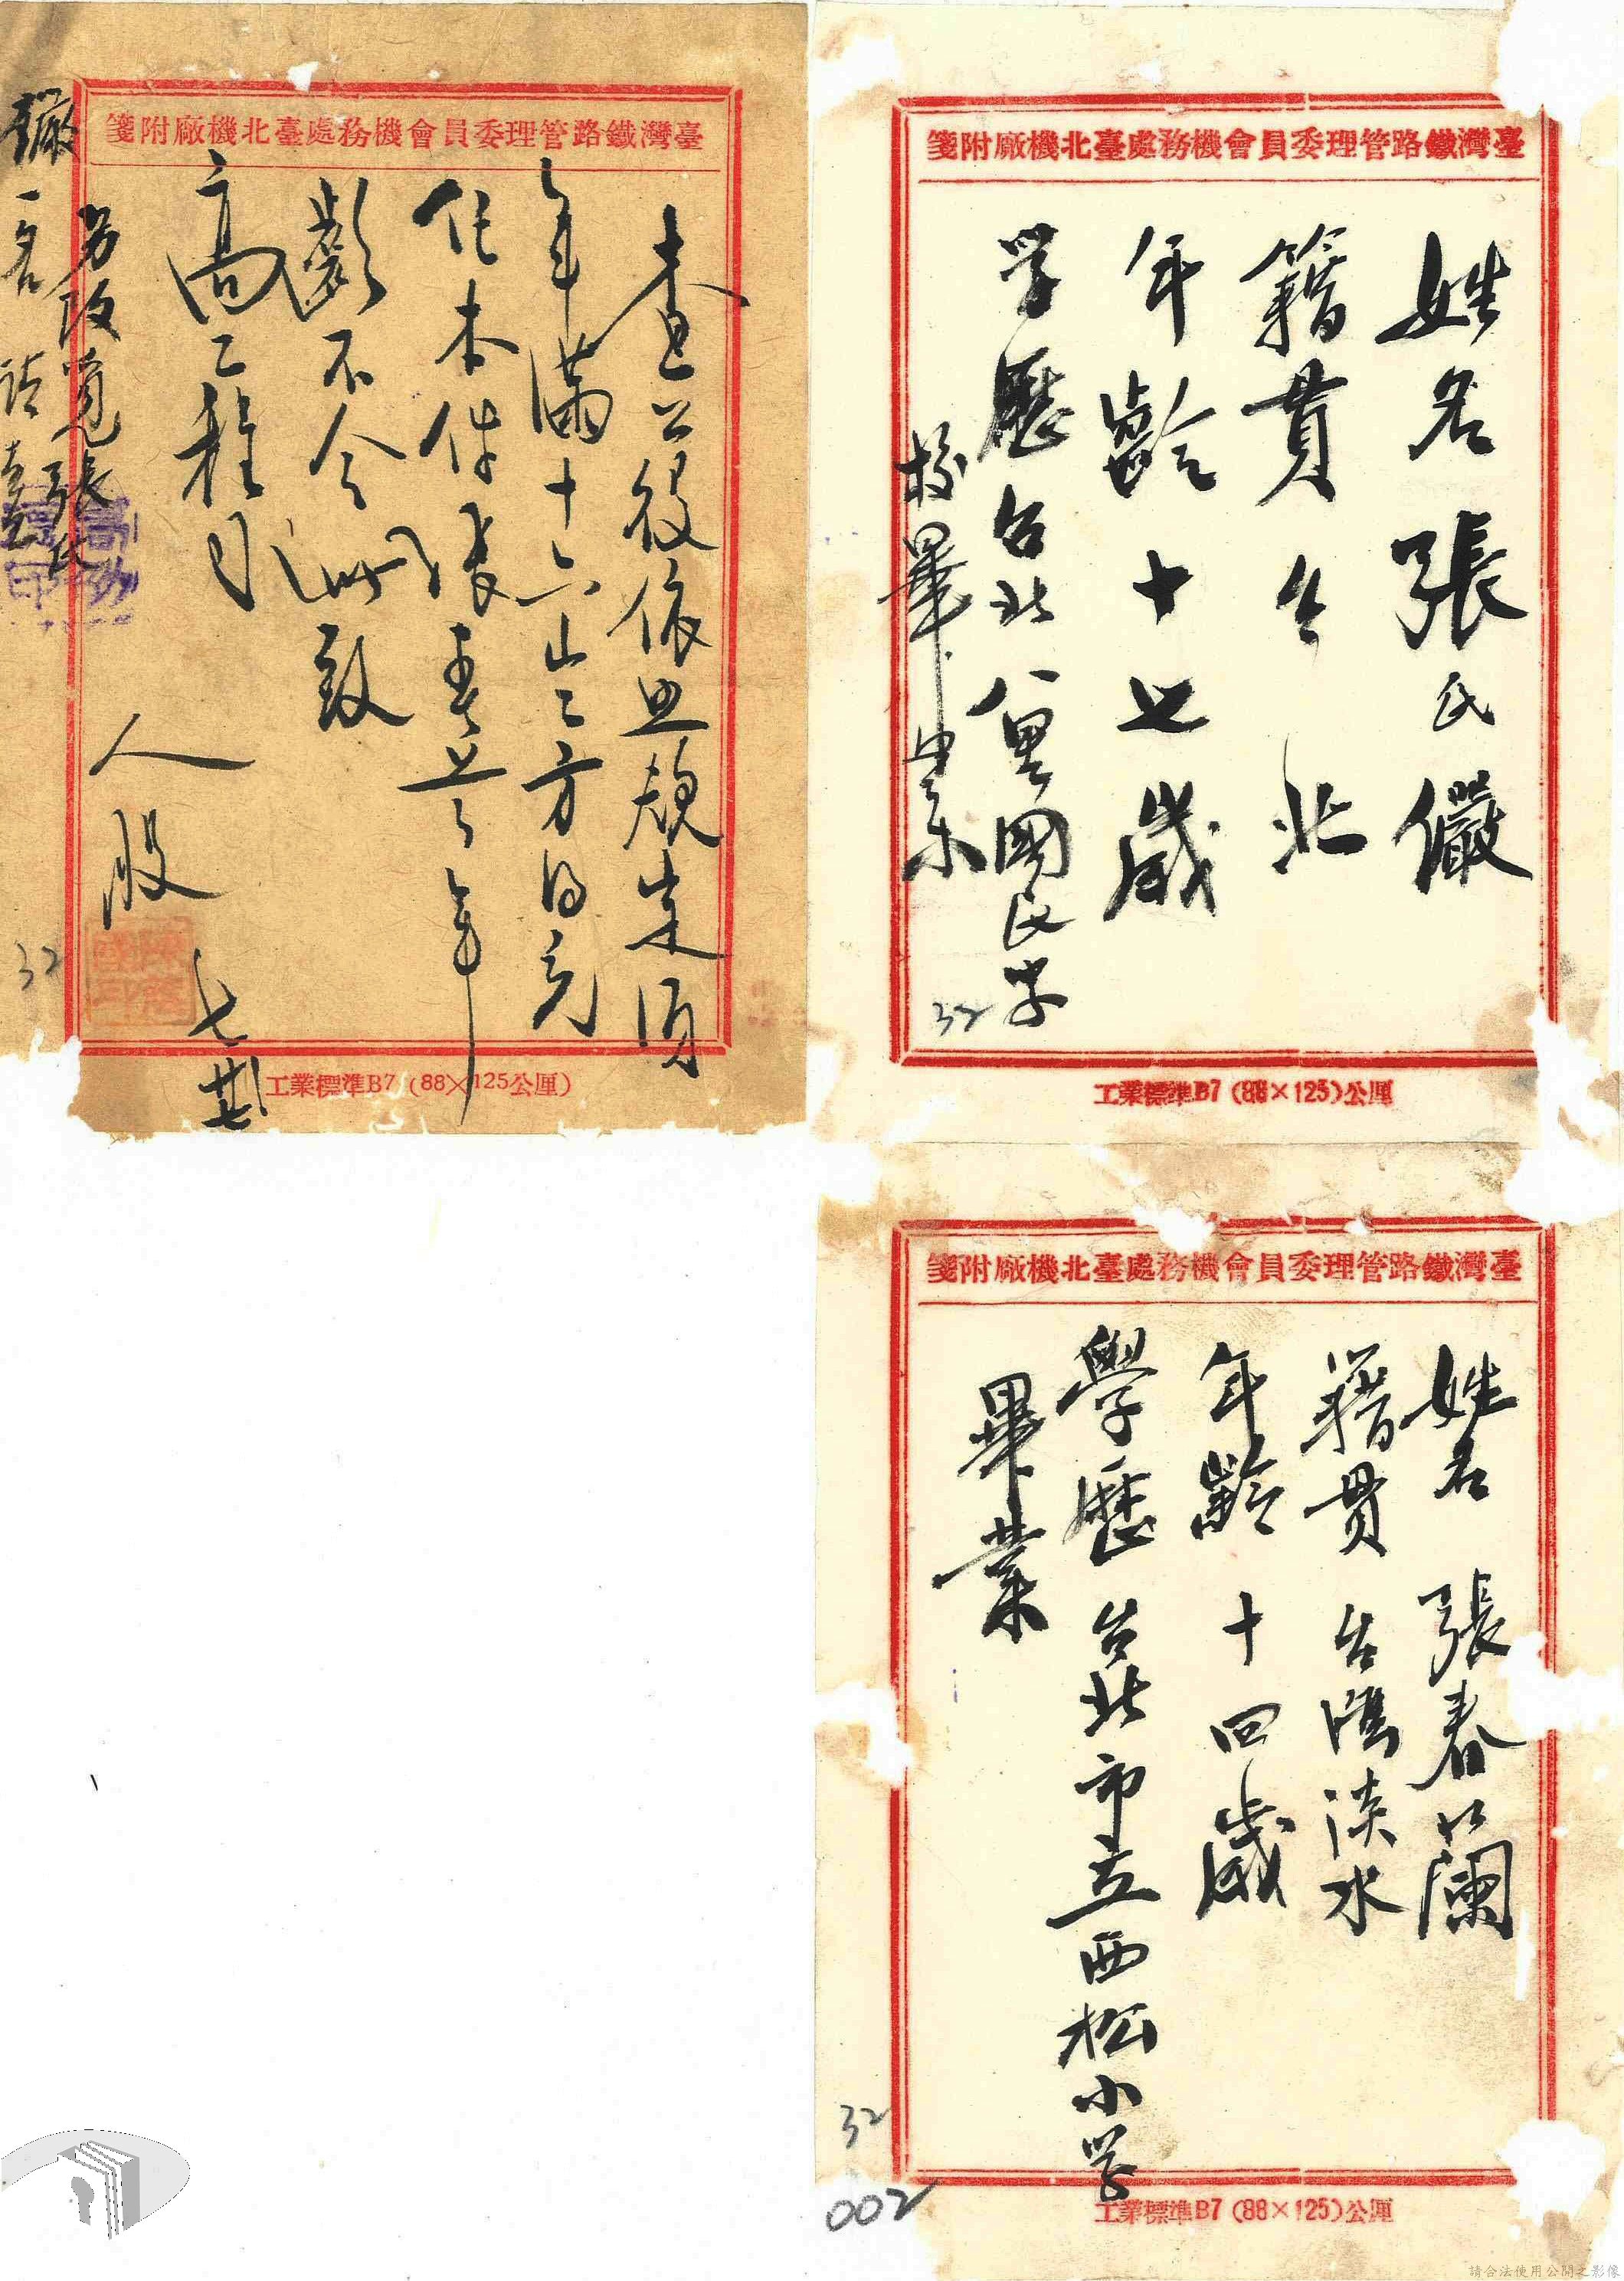 臺灣鐵路管理委員會機務處臺北機廠附箋
姓名 張氏儼
籍貫 台北
年齡 十七歲
学歷 台北八里國民学
校畢業
32
工業標準B7 (88×125)公厘
臺灣鐵路管理委員會機務處臺北機廠附箋
查公役依照規定須
年滿十六歲方得充
任本件張春蘭年
齡不合此致
高工程司
人股
七 廿七
另改覓張氏
儼一名請
32
工業標準B7 (88×125公厘)
臺灣鐵路管理委員會機務處臺北機廠附箋
姓名 張春蘭
籍貫 台灣淡水
年齡 十四歲
學歷 台北市立西松小学
畢業
32
002
工業標準B7 (88×125)公厘
請合法使用公開之影像